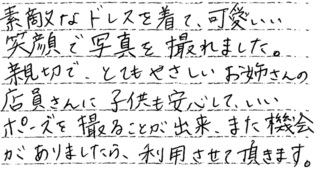 素敵なドレスを着て、可愛いい
笑顔で写真を撮れました。
親切で、とてもやさしいお姉さんの
店員さんに子供も安心して、いい
ポーズを撮ることが出来、また機会
がありましたら、利用させて頂きます。